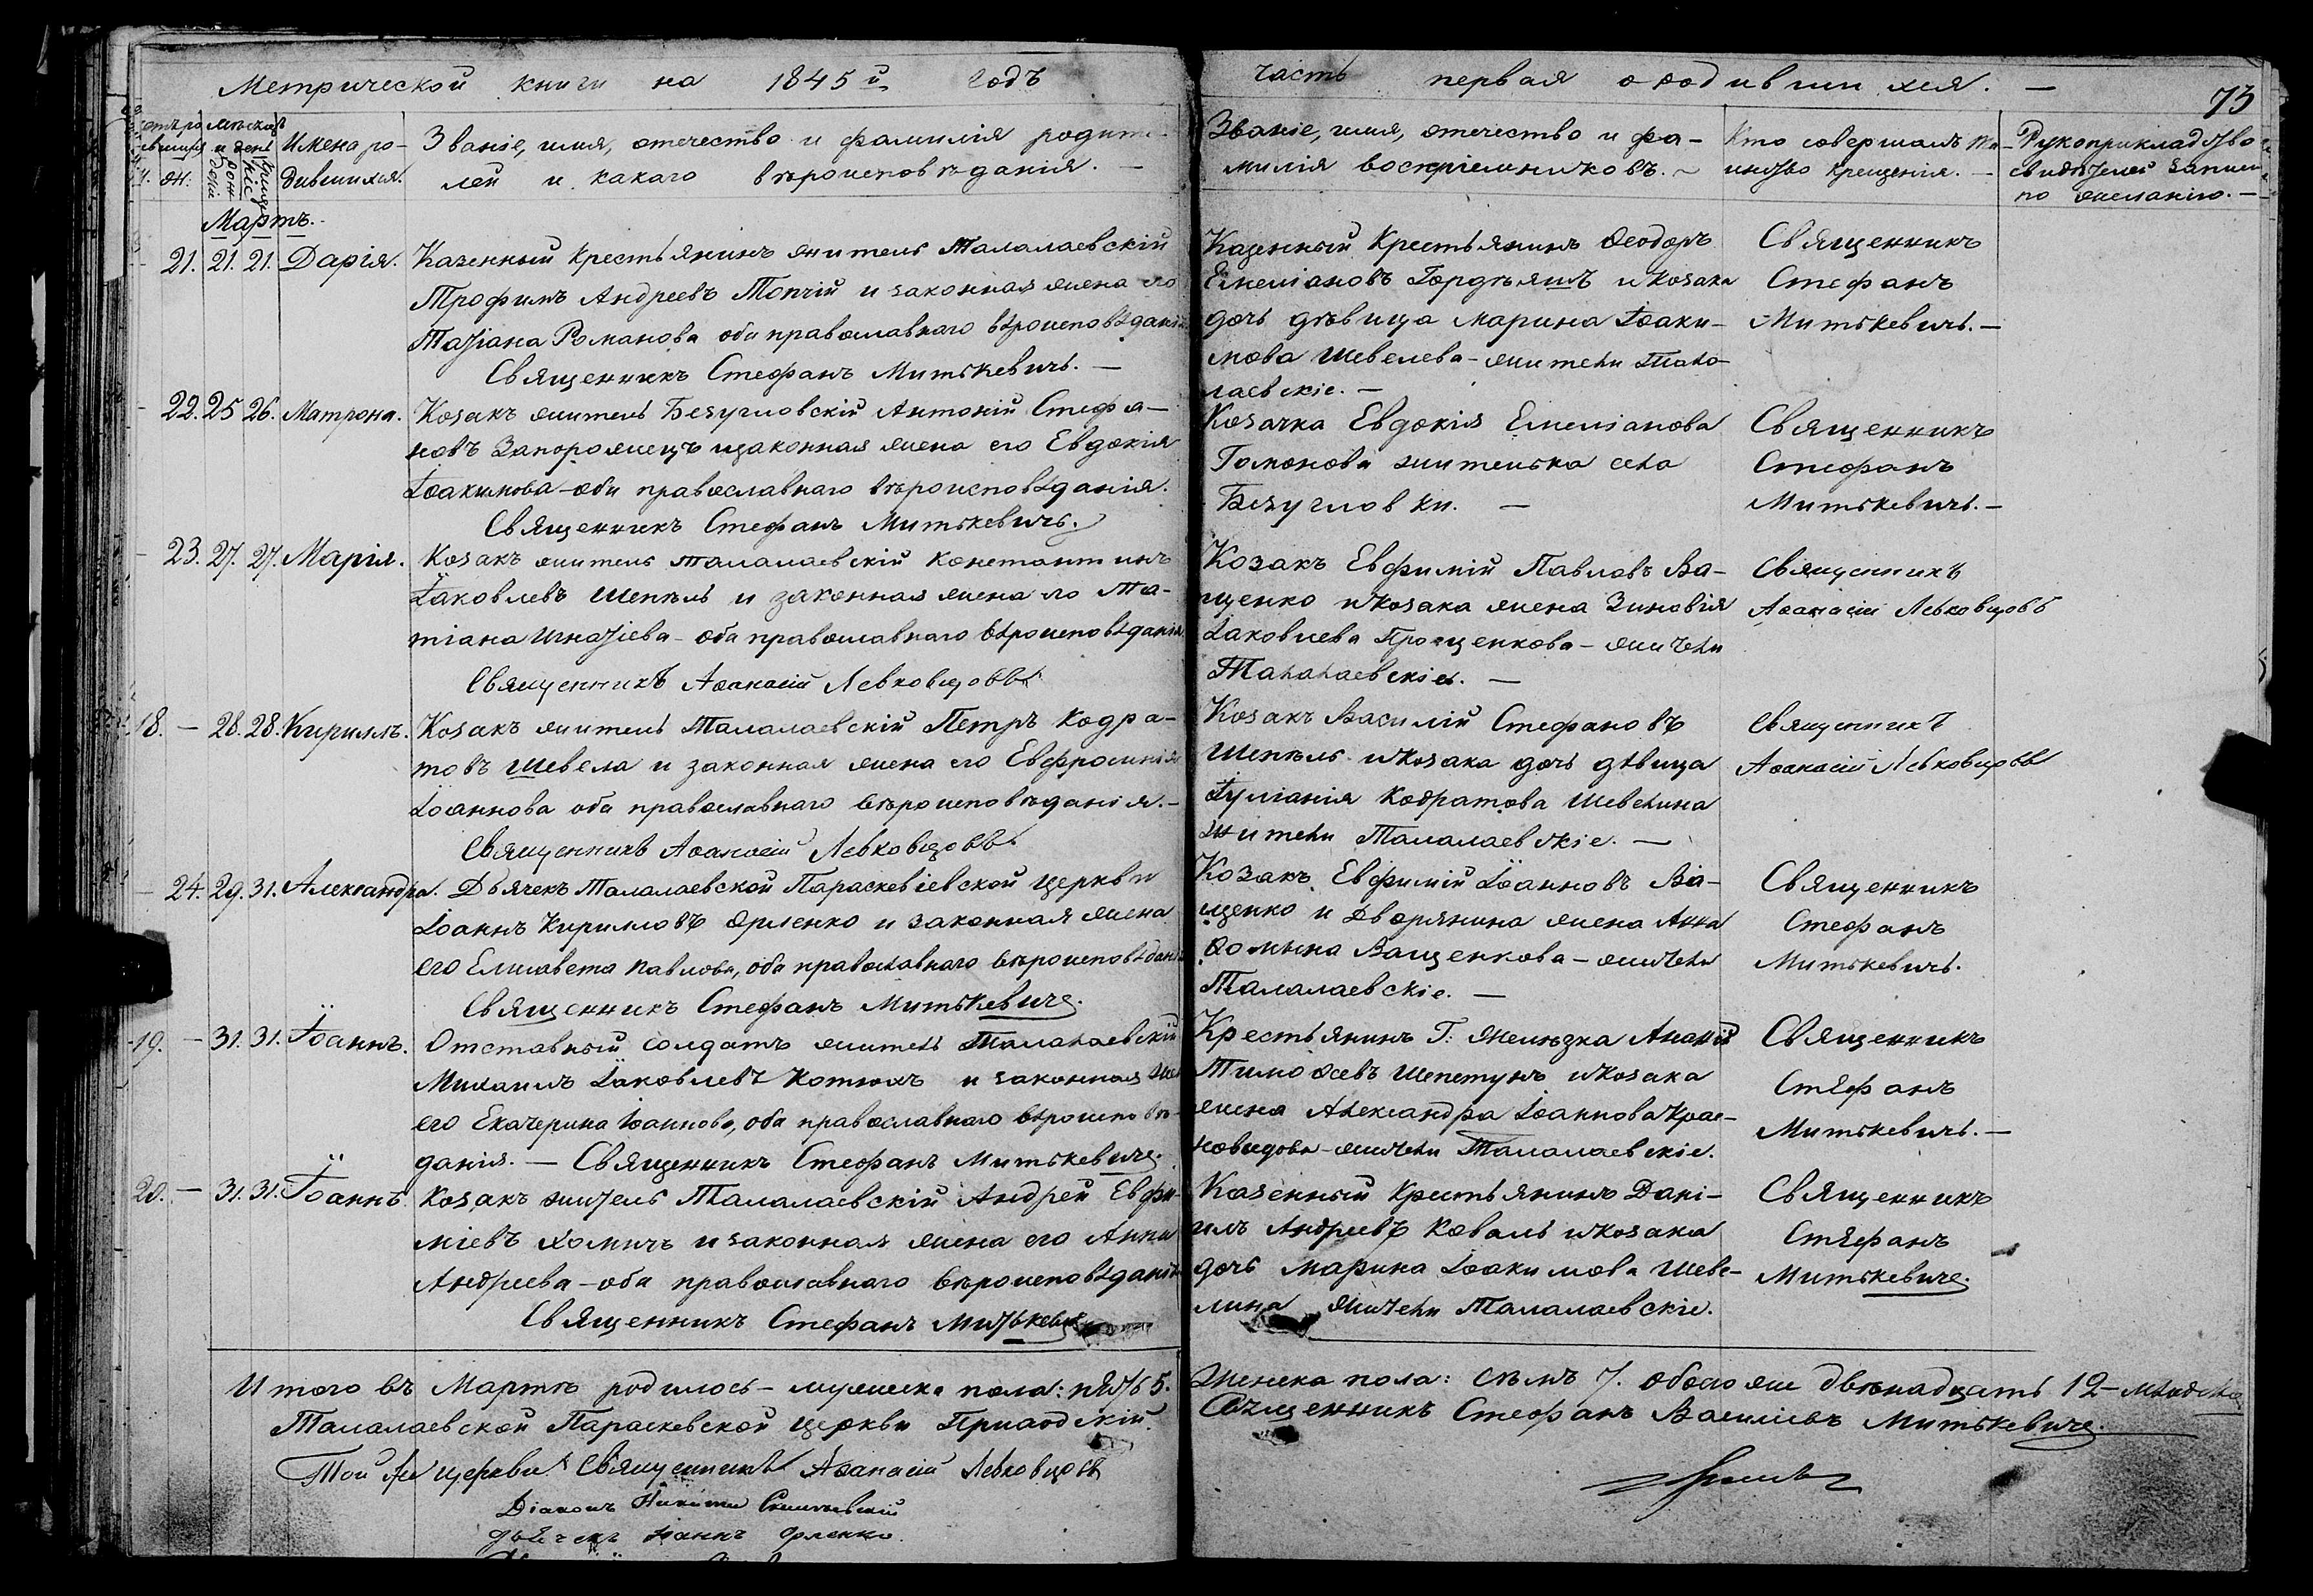 Метрической книги на 1845й годъ
часть первая о родившихся. —
73
Имена ро-
дившихся.
Званіе, имя, отечество и фамилія родите-
лей и какаго вѣроисповѣданія. —
Званіе, имя, отечество и фа-
милія воспріемниковъ. ~
Кто совершалъ та-
инство крещенія. —
Рукоприкладство
свидѣтелей записи
по желанію. —
Мартъ.
21. 21. 21. Дарія.
Казенный крестьянинъ житель Талалаевскій
Трофимъ Андреевъ Топчій и законная жена его
Татіана Романова оба православнаго вѣроисповѣданія
Священникъ Стефанъ Митькевичъ. —
Казенный Крестьянинъ Ѳеодоръ
Емеліановъ Гордѣяшъ и козака
дочь дѣвица Марина Іоаки-
мова Шевелева - жители Тала-
лаевскіе. —
Священникъ
Стефанъ
Митькевичъ. —
22. 25 26. Матрона.
Козакъ житель Безугловскій Антоній Стефа-
новъ Запорожецъ и законная жена его Евдокія
Іоакимова - оба православнаго вѣроисповѣданія.
Священникъ Стефанъ Митькевичъ.
Козачка Евдокія Емеліанова
Гомонова жителька села
Безугловки. —
Священникъ
Стефанъ
Митькевичъ. —
23. 27. 27. Марія.
Козакъ житель Талалаевскій Константинъ
Іаковлевъ Шепѣль и законная жена его Та-
тіана Игнатіева - оба православнаго вѣроисповѣданія
Священникъ Аѳанасій Левковцовъ
Козакъ Евфимій Павловъ Ва-
щенко и козака жена Зиновія
Іаковлева Прощенкова - жители
Талалаевскіе. —
Священникъ
Аѳанасій Левковцовъ
18. — 28. 28. Кириллъ.
Козакъ житель Талалаевскій Петръ Кодра-
товъ Шевела и законная жена его Евфросинія
Іоаннова оба православнаго вѣроисповѣданія. —
Священникъ Аѳанасій Левковцовъ
Козакъ Василій Стефановъ
Шепѣль и козака дочь дѣвица
Іуліанія Кодратова Шевелина
жители Талалаевскіе. —
Священникъ
Аѳанасій Левковцовъ
24. 29. 31. Александра.
Дьячекъ Талалаевской Параскевіевской церкви
Іоаннъ Кирилловъ Орленко и законная жена
его Елисавета Павлова, оба православнаго вѣроисповѣданія
Священникъ Стефанъ Митькевичъ.
Козакъ Евфимій Іоанновъ Ва-
щенко и Дворянина жена Анна
Ѳомина Ващенкова - жители
Талалаевскіе. —
Священникъ
Стефанъ
Митькевичъ.
19. — 31. 31. Іоаннъ.
Отставный солдатъ житель Талалаевскій
Михаилъ Іаковлевъ Котюхъ и законная жена
его Екатерина Іоаннова, оба православнаго вѣроисповѣ-
данія. — Священникъ Стефанъ Митькевичъ.
Крестьянинъ Г: Желѣзка Ананій
Тимоѳеевъ Шепетунъ и козака
жена Александра Іоаннова Крас-
новидова - жители Талалаевскіе.
Священникъ
Стефанъ
Митькевичъ. —
20. — 31. 31. Іоаннъ
Козакъ житель Талалаевскій Андрей Евфи-
міевъ Хомичъ и законная жена его Анна
Андреева - оба православнаго вѣроисповѣданія
Священникъ Стефанъ Митькевичъ
Казенный Крестьянинъ Дані-
илъ Андреевъ Коваль и козака
дочь Марина Іоакимова Шеве-
лина жители Талалаевскіе.
Священникъ
Стефанъ
Митькевичъ.
Итого въ Мартѣ родилось - мужеска пола: пять 5.
Женска пола: семь 7. обоего же двѣнадцать 12 - младенцевъ
Талалаевской Параскевской церкви Приходскій
Священникъ Стефанъ Василіевъ Митькевичъ.
Той же церкви Священникъ Аѳанасій Левковцовъ
Діаконъ Никита
дьячекъ Іоаннъ Орленко.